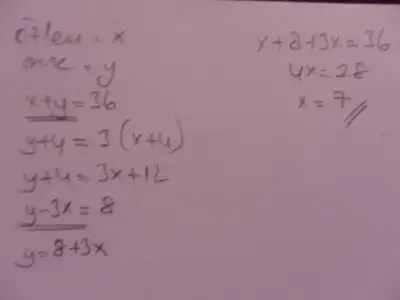 = x
= y
x+y = 36
y+4 = 3(x+4)
y+4 = 3x+12
y-3x = 8
y= 8+3x
x+8+3x=36
4x=28
x=7